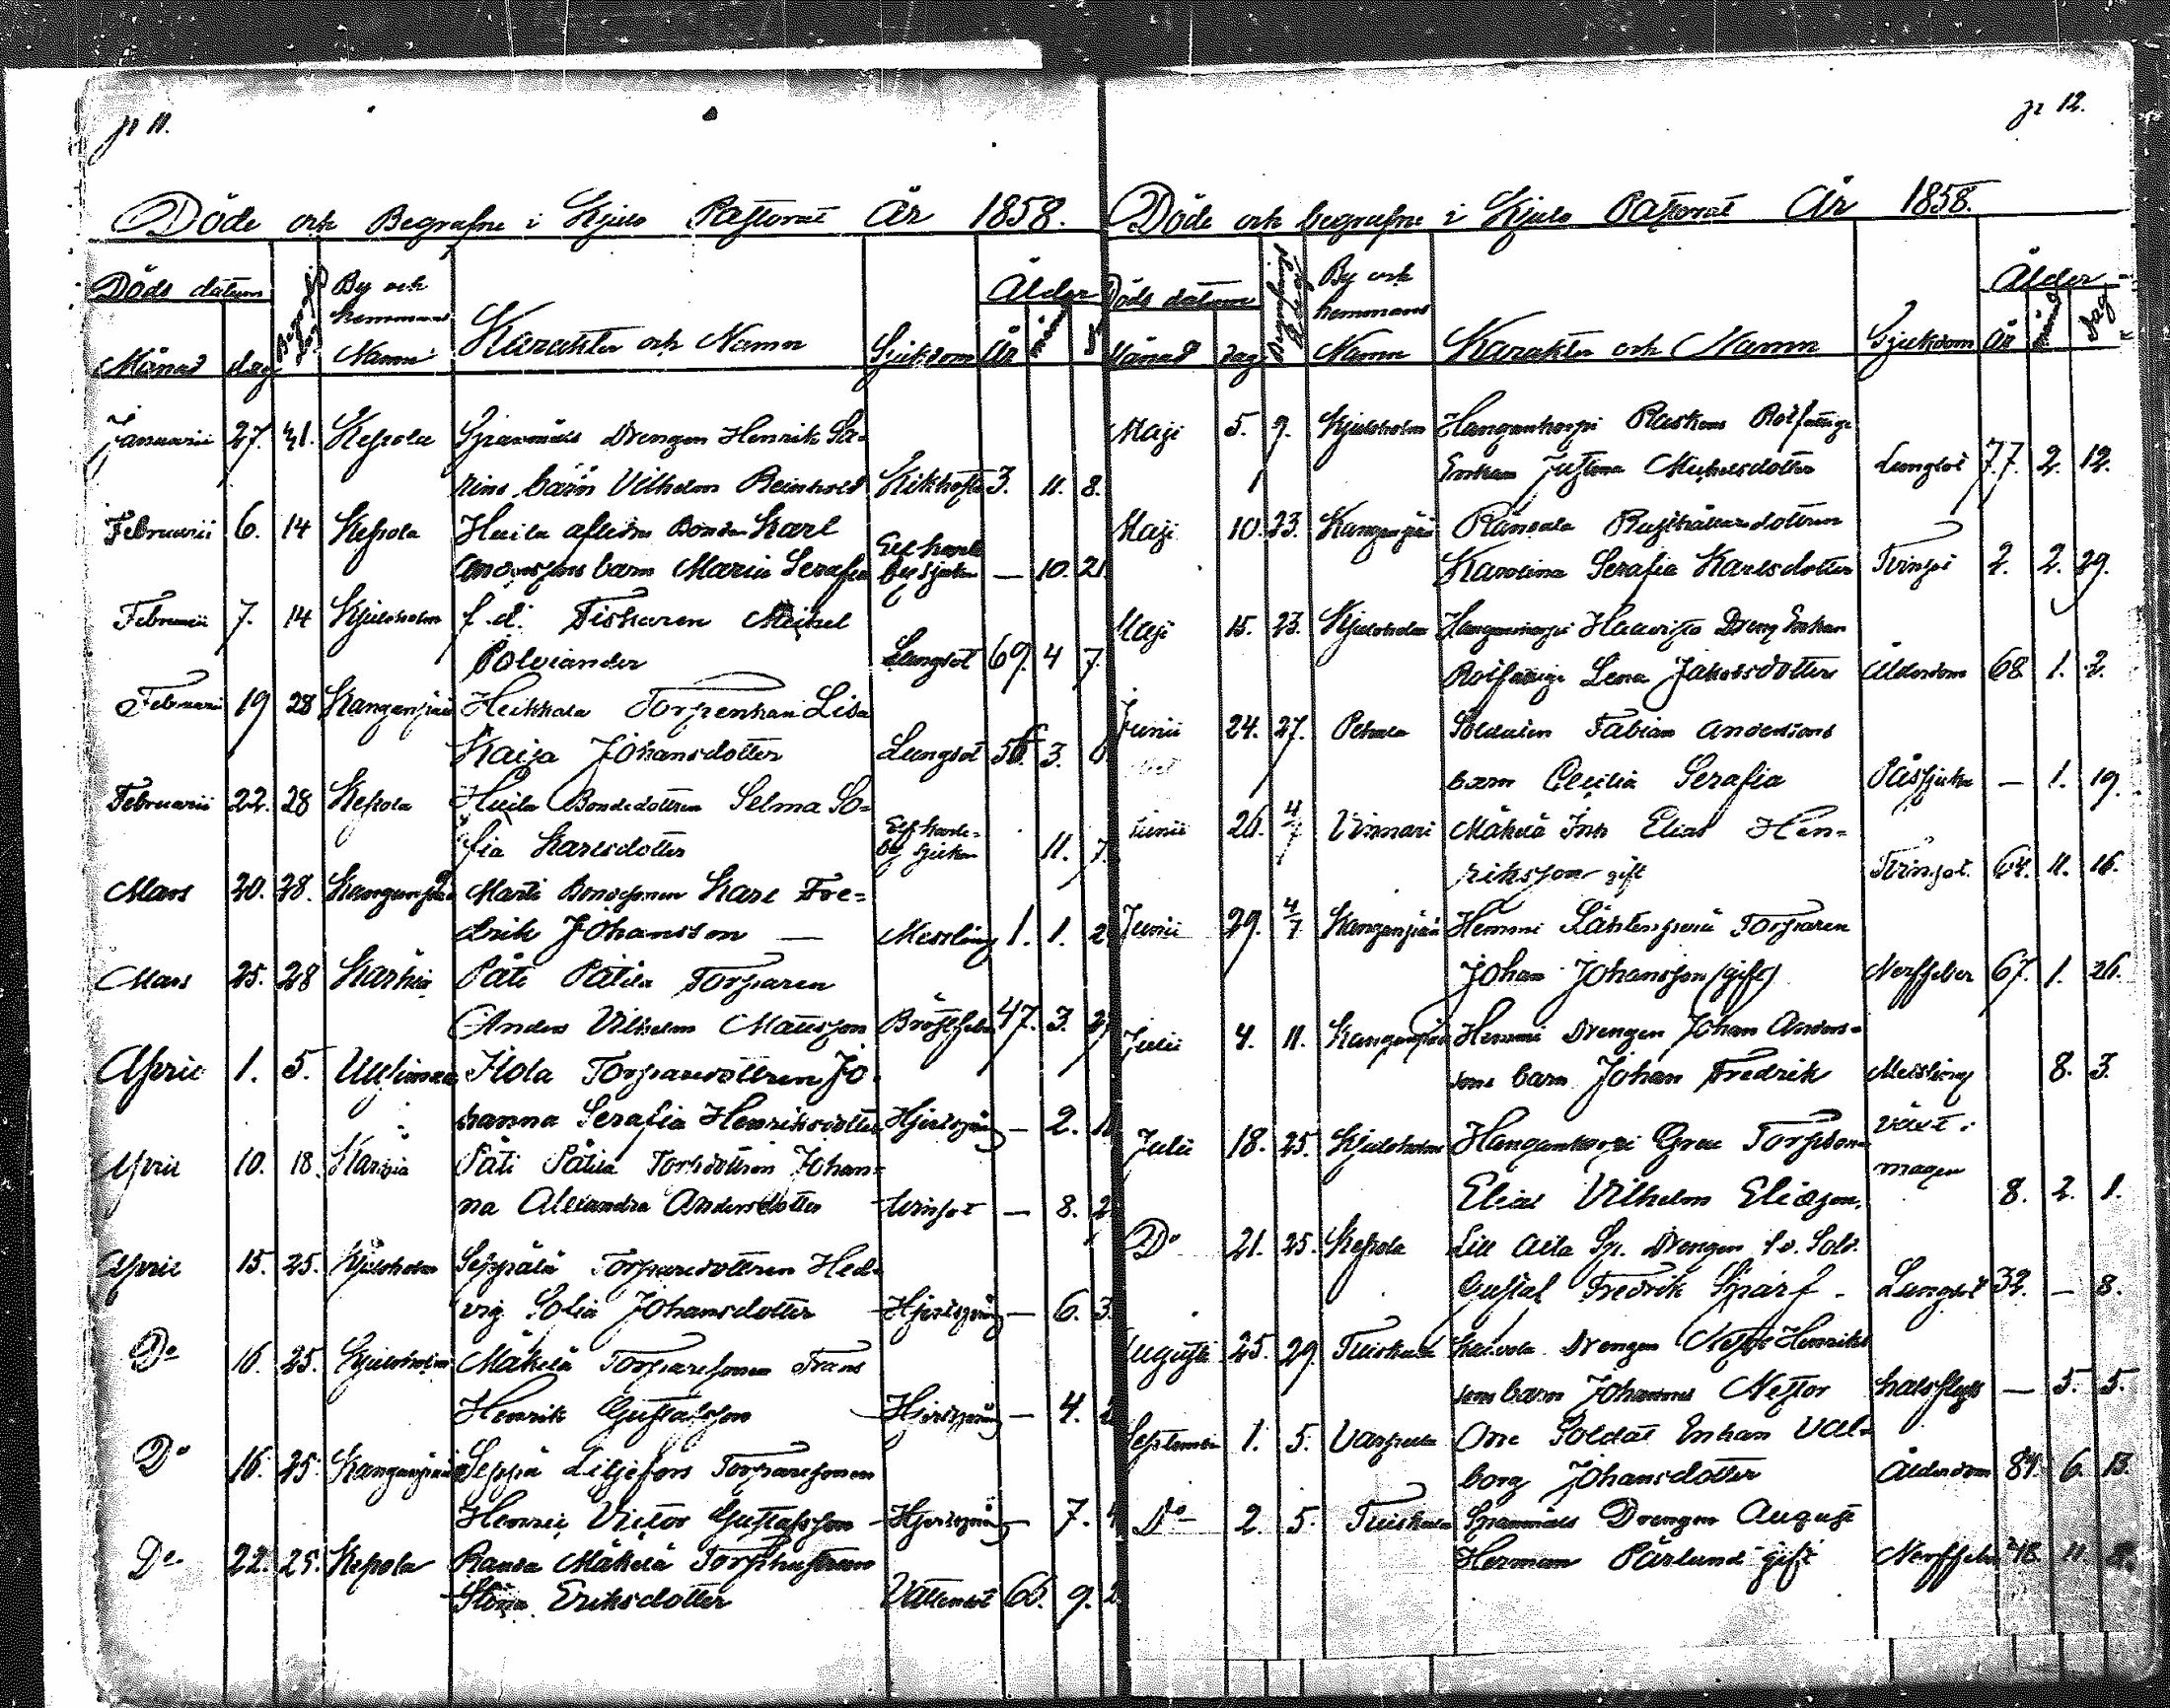 p 11.
Döde och Begrafne i Kjulo Pastorat År 1858.
Döds datum By och hemmans Namn Karakter och Namn Sjukdom Ålder
Månad dag År
Januarii 27. 31. Kepola Drengen Henrik Sa-
rins barn Vilhelm Reinhold Kikhosta 3. 11. 8.
Februarii 6. 14 Kepola Huila aflidn Bonden Karl
barn Maria Serafia — 10. 21.
Februarii 7. 14 Kjuloholm f. d. Fiskaren Mickel
Polviander Lungsot 69. 4 7.
Februarii 19 28 Kanganpää Heikkala Torpenkan Lisa
Kaisa Johansdotter Lungsot 56. 3.
Februarii 22. 28 Kepola Huila Bondedottren Selma So-
fia Karlsdotter 11. 7.
Mars 20. 28. Kanganpää Martti Bondesonen Karl Fre-
drik Johansson — Messling 1. 1. 2
Mars 25. 28 Karhia Päti Pätila Torparen
Anders Vilhelm Mattsson Bröstfeber 47. 3.
April 1. 5. Uusimaa Ilola Torparedottren Jo-
hanna Serafia Henriksdotter Hjertsprång — 2.
April 10. 18. Karhia Päti Pätila Torpdottren Johan-
na Alexandra Andersdotter tvinsot — 8. 2
April 15. 25. Kjuloholm Seppälä Torparedottren Hed-
vig Sofia Johansdotter Hjertsprång — 6. 3.
Do 16. 25. Kjuloholm Mäkelä Torparesonen Frans
Henrik Gustafsson Hjertsprång — 4. 2
Do 16. 25. Kanganpää Seppä Liljefors Torparesonen
Henric Victor Gustafsson Hjertsprång — 7.
Do 22. 25. Kepola Ranta Mäkelä Torphustrun
Eriksdotter Vattensot 66. 9. 2.
p 12.
Döde och begrafne i Kjulo Pastorat År 1858.
Döds datum Begrafnings dag By och hemmans Namn Karakter och Namn Sjukdom Ålder
Månad dag År månad dag
Maji 5. 9. Kjuloholm Hangankorpi Raskens Rotfattige
Enkan Justina Michelsdotter Lungsot 77. 2. 12.
Maji 10. 23. Kanganpää Rusthållaredottren
Karolina Serafia Karlsdotter Tvinsot 2. 2. 29.
Maji 15. 23. Kjuloholm Hangankorpi Haavisto Dreng Enkan
Rotfattige Lena Jakobsdotter Ålderdom 68. 1. 2.
Junii 24. 27. Pehula Soldaten Fabian Anderssons
barn Cecilia Serafia — 1. 19.
Junii 26. 4/7 Vinnari Mäkelä Inh Elias Hen-
riksson gift Tvinsot 64. 11. 16.
Junii 29. 4/7 Kanganpää Hemmi Lähtenperä Torparen
Johan Johansson (gift) Nerffeber 67. 1. 26.
Julii 4. 11. Kanganpää Hemmi Drengen Johan Anders-
sons barn Johan Fredrik Messling 8. 3.
Julii 18. 25. Kjuloholm Hangankorpi Gren Torpson värk i
Elias Vilhelm Eliasson. magen 8. 2. 1.
Do 21. 25. Kepola Lill Aila Drengen f. d. Sold.
Gustaf Fredrik Sparf. Lungsot 32. — 8.
Augusti 25. 29. Tuiskula Kaivola Drengen Henriks
sons barn Johannes Nestor — 5. 5.
September 1. 5. Varpula Soldat Enkan Val-
borg Johansdotter Ålderdom 84. 6. 13.
Do 2. 5. Tuiskula Drengen August
Herman Pärlund gift Nerffeber 48. 11.